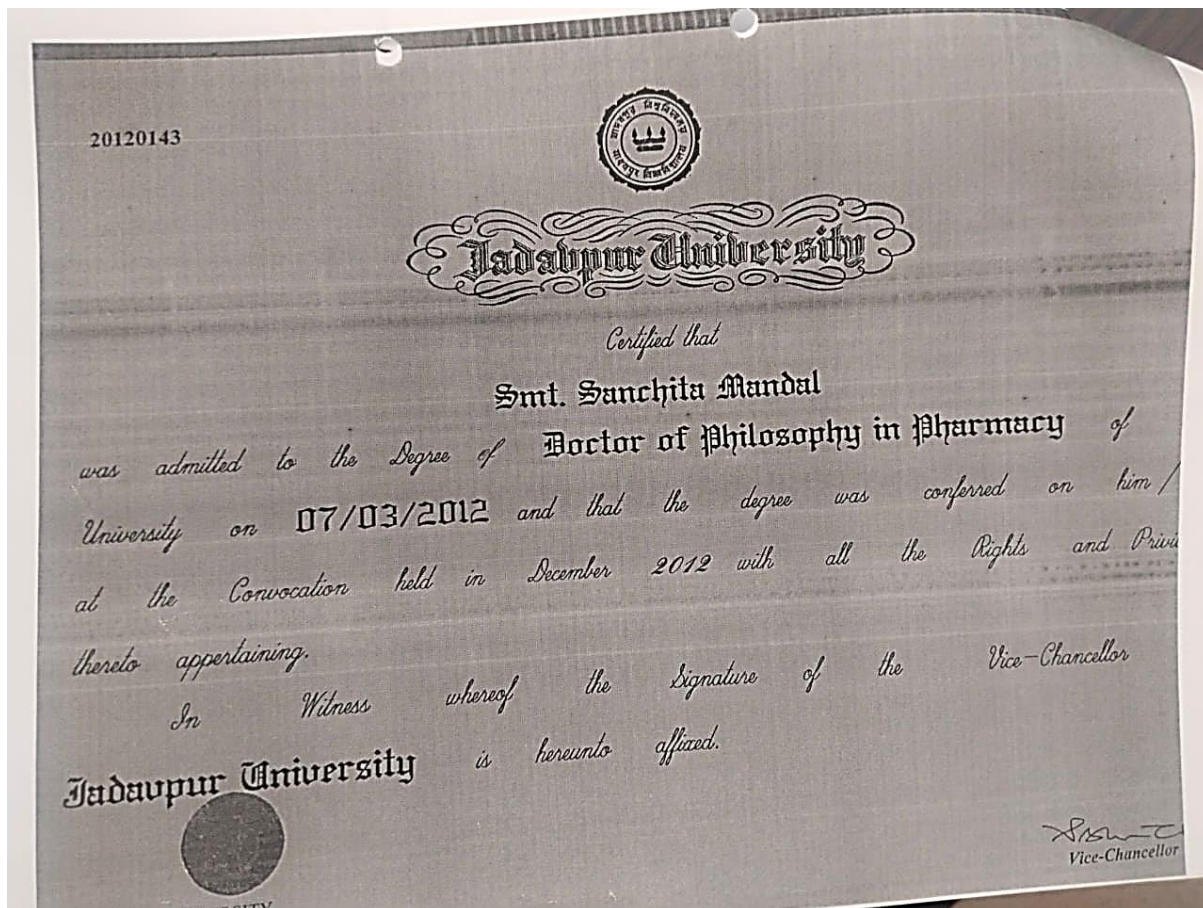 20120143
যাদবপুর বিশ্ববিদ্যালয়
Jadavpur University
Certified that
Smt. Sanchita Mandal
was admitted to the Degree of Doctor of Philosophy in Pharmacy of
University on 07/03/2012 and that the degree was conferred on him /
at the Convocation held in December 2012 with all the Rights and Privi
thereto appertaining.
In Witness whereof the Signature of the Vice-Chancellor
Jadavpur University is hereunto affixed.
Vice-Chancellor